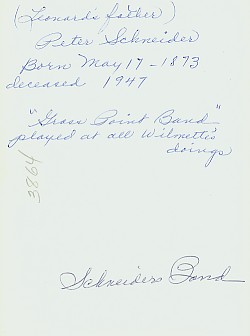 (Leonard's father)
Peter Schneider
Born May 17 - 1873
deceased 1947
"Gross Point Band"
played at all Wilmette's
doings
3864
Schneiders Band